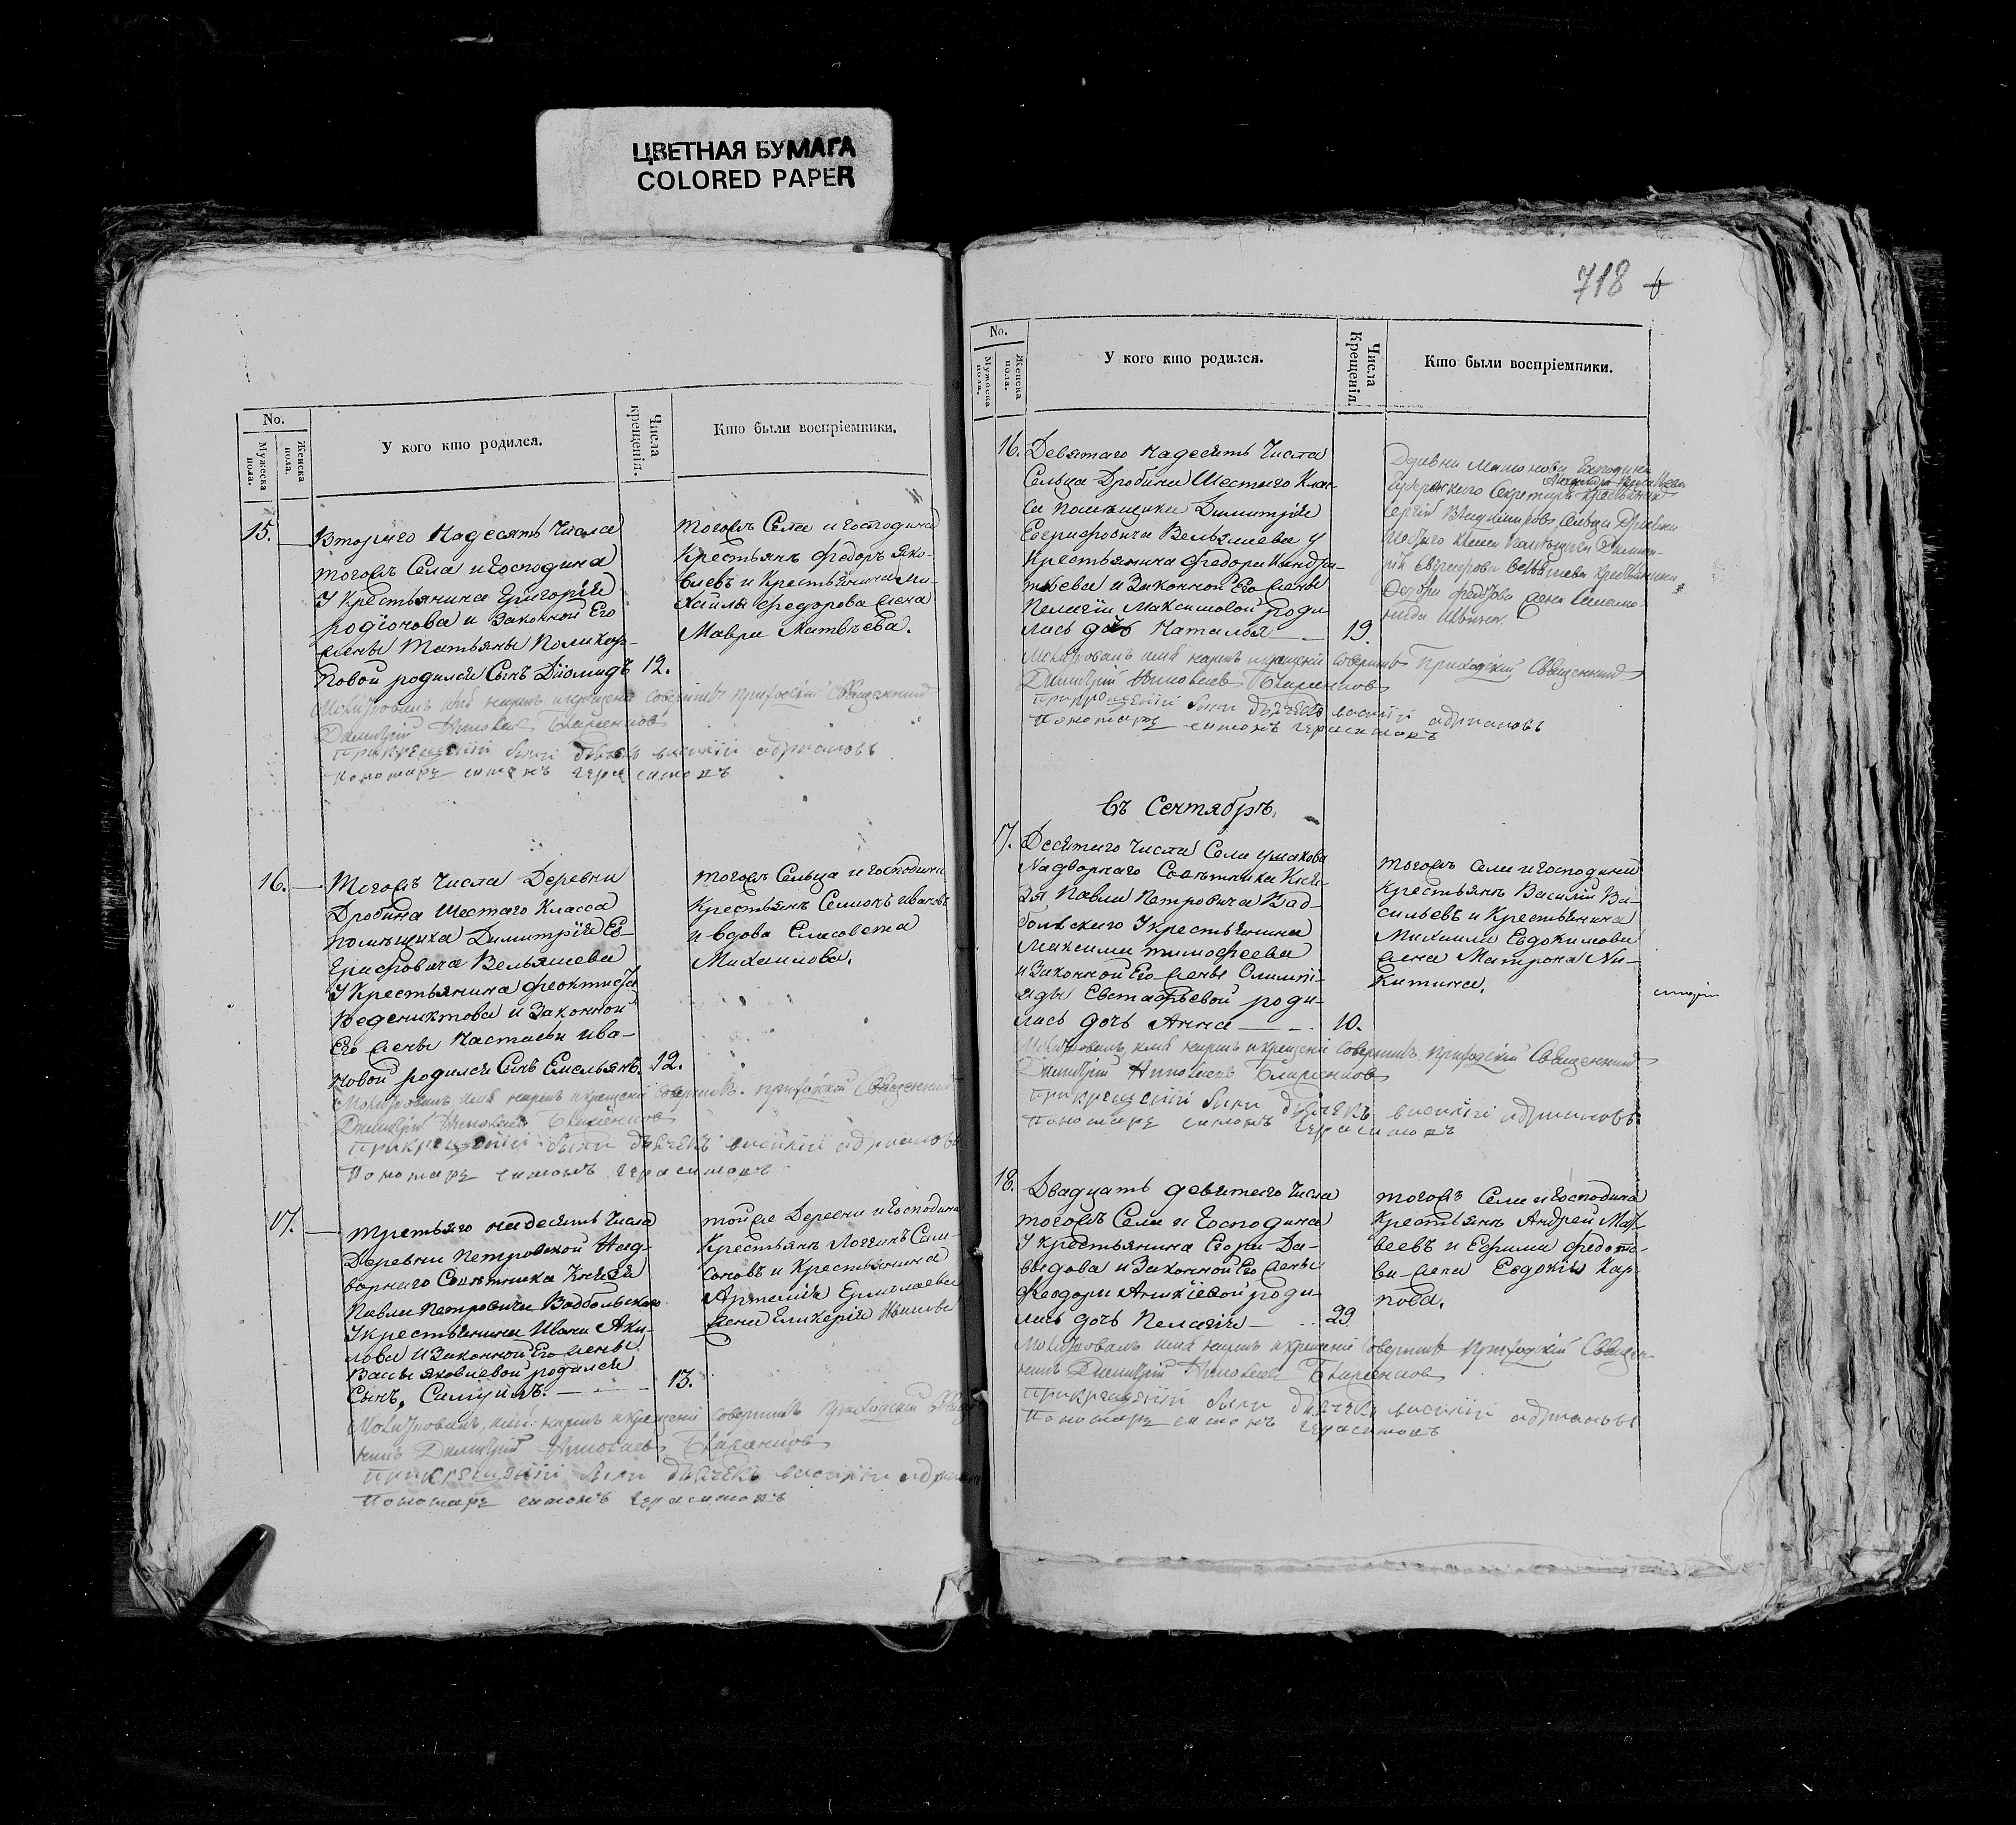 ЦВЕТНАЯ БУМАГА
COLORED PAPER
718
No.
Мужеска пола.
Женска пола.
У кого кто родился.
Числа крещенія.
Кто были воспріемники.
15.
Втораго Надесять Числа
тогожъ Села и Господина
У Крестьянина Григорія
родіонова и Законной Его
жены Татьяны Поликар-
повой родился Сынъ Діомидъ
12.
тогожъ Села и Господина
Крестьянъ Федоръ Яко-
влевъ и Крестьянина Ми-
хайлы Федорова жена
Мавра Матвѣева.
Молитвовалъ имя нарекъ и крещеніе совершилъ приходскій Священникъ
Димитрій Николаевъ
при крещеніи были дьячекъ василій адриановъ
пономарь симонъ герасимовъ
16.
Тогожъ Числа Деревни
Дробина Шестаго Класса
помѣщика Димитрія Ев-
графовича Вельяшева
У Крестьянина Феоктиста
Веденихтова и Законной
Его жены Настасьи ива-
новой родился Сынъ Емельянъ.
12.
тогожъ Сельца и господина
Крестьянъ Семионъ ивановъ
и вдова Елисовета
Михаилова.
Молитвовалъ имя нарекъ и крещеніе совершилъ приходскій Священникъ
Димитрій Николаевъ
при крещеніи были дьячекъ василій адриановъ
пономарь симонъ герасимовъ
17.
Третьяго надесять Числа
Деревни Петровской Над-
ворнаго Совѣтника Князя
Павла Петровича Вадбольскаго
У крестьянина Ивана Аки-
лова и Законной Его жены
Васы яковлевой родился
Сынъ, Самуилъ.
13.
тойже Деревни и Господина
Крестьянъ Логинъ Сам-
соновъ и Крестьянина
Артемія Ермолаева
жена Гликерія
Молитвовалъ имя нарекъ и крещеніе совершилъ приходскій
никъ Димитрій Николаевъ
при крещеніи были дьячекъ василій
пономарь симонъ герасимовъ
No.
Мужеска пола.
Женска пола.
У кого кто родился.
Числа Крещенія.
Кто были воспріемники.
16.
Девятаго надесять Числа
Сельца Дробина Шестаго Клас-
са помѣщика Димитрія
Евграфовича Вельяшева у
Крестьянина Федора Кондра-
тьева и Законной Его жены
Пелагіи Максимовой роди-
лась дочь Наталья
19.
Деревни
Секретаря
Сельца Дробина
Шестаго класса Помѣщика Димит-
рія Евграфова Вельяшева крестьянина
жена
Молитвовалъ имя нарекъ и крещеніе совершилъ Приходскій Священникъ
Димитрій Николаевъ
при крещеніи были дьячекъ василій адриановъ
пономарь симонъ герасимовъ
Въ Сентябрѣ.
17.
Десятаго Числа Села
Надворнаго Совѣтника Кня-
зя Павла Петровича Вад-
больскаго У крестьянина
Максима тимофеева
и Законной Его жены Олимпі-
яды Евстафьевой роди-
лась дочь Анна
10.
тогожъ села и господина
Крестьянъ Василій Ва-
сильевъ и Крестьянина
Михаила Евдокимова
жена Матрона Ни-
китина.
Молитвовалъ имя нарекъ и крещеніе совершилъ приходскій Священникъ
Димитрій Николаевъ
при крещеніи были дьячекъ василій адриановъ
пономарь симонъ герасимовъ
18.
Двадцать девятаго Числа
тогожъ Села и Господина
У крестьянина Егора Да-
выдова и Законной Его жены
Феодоры Аникіевой роди-
лась дочь Пелагія
29
тогожъ Села и Господина
Крестьянъ Андрей Мат-
веевъ и Ефима федото-
ва жена Евдокія Кар-
пова.
Молитвовалъ имя нарекъ и крещеніе совершилъ приходскій Священ-
никъ Димитрій Николаевъ
при крещеніи были дьячекъ василій адриановъ
пономарь симонъ герасимовъ